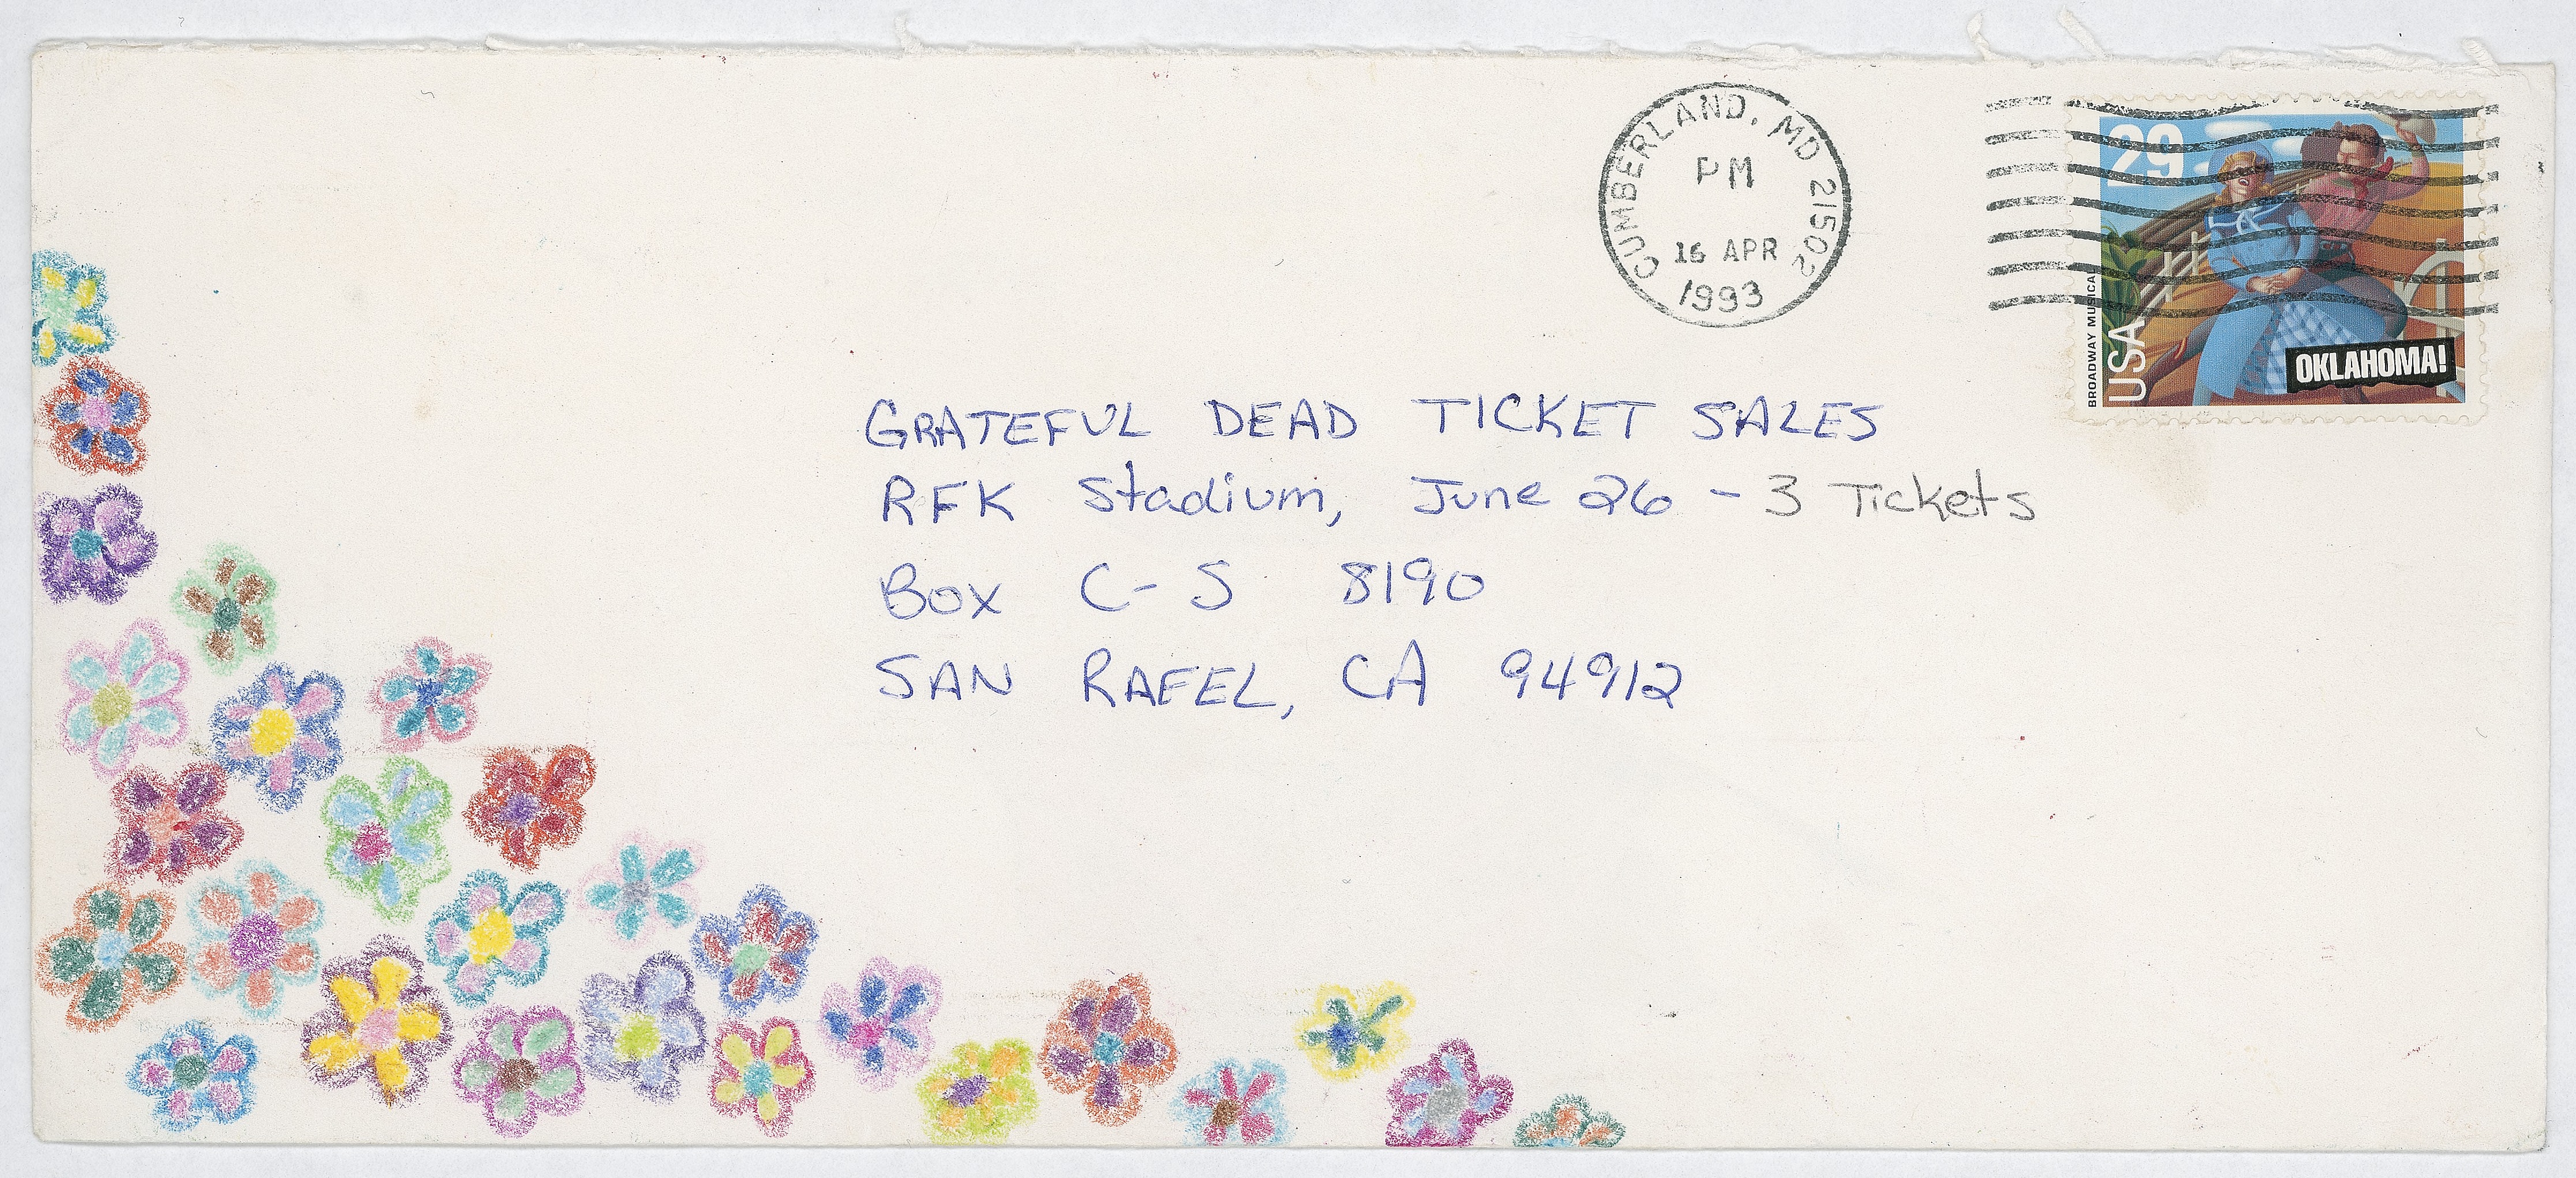 CUMBERLAND, MD 21502
PM
16 APR
1993
29
BROADWAY MUSICA
USA
OKLAHOMA!
GRATEFUL DEAD TICKET SALES
RFK Stadium, June 26 - 3 Tickets
Box C-S 8190
SAN RAFEL, CA 94912